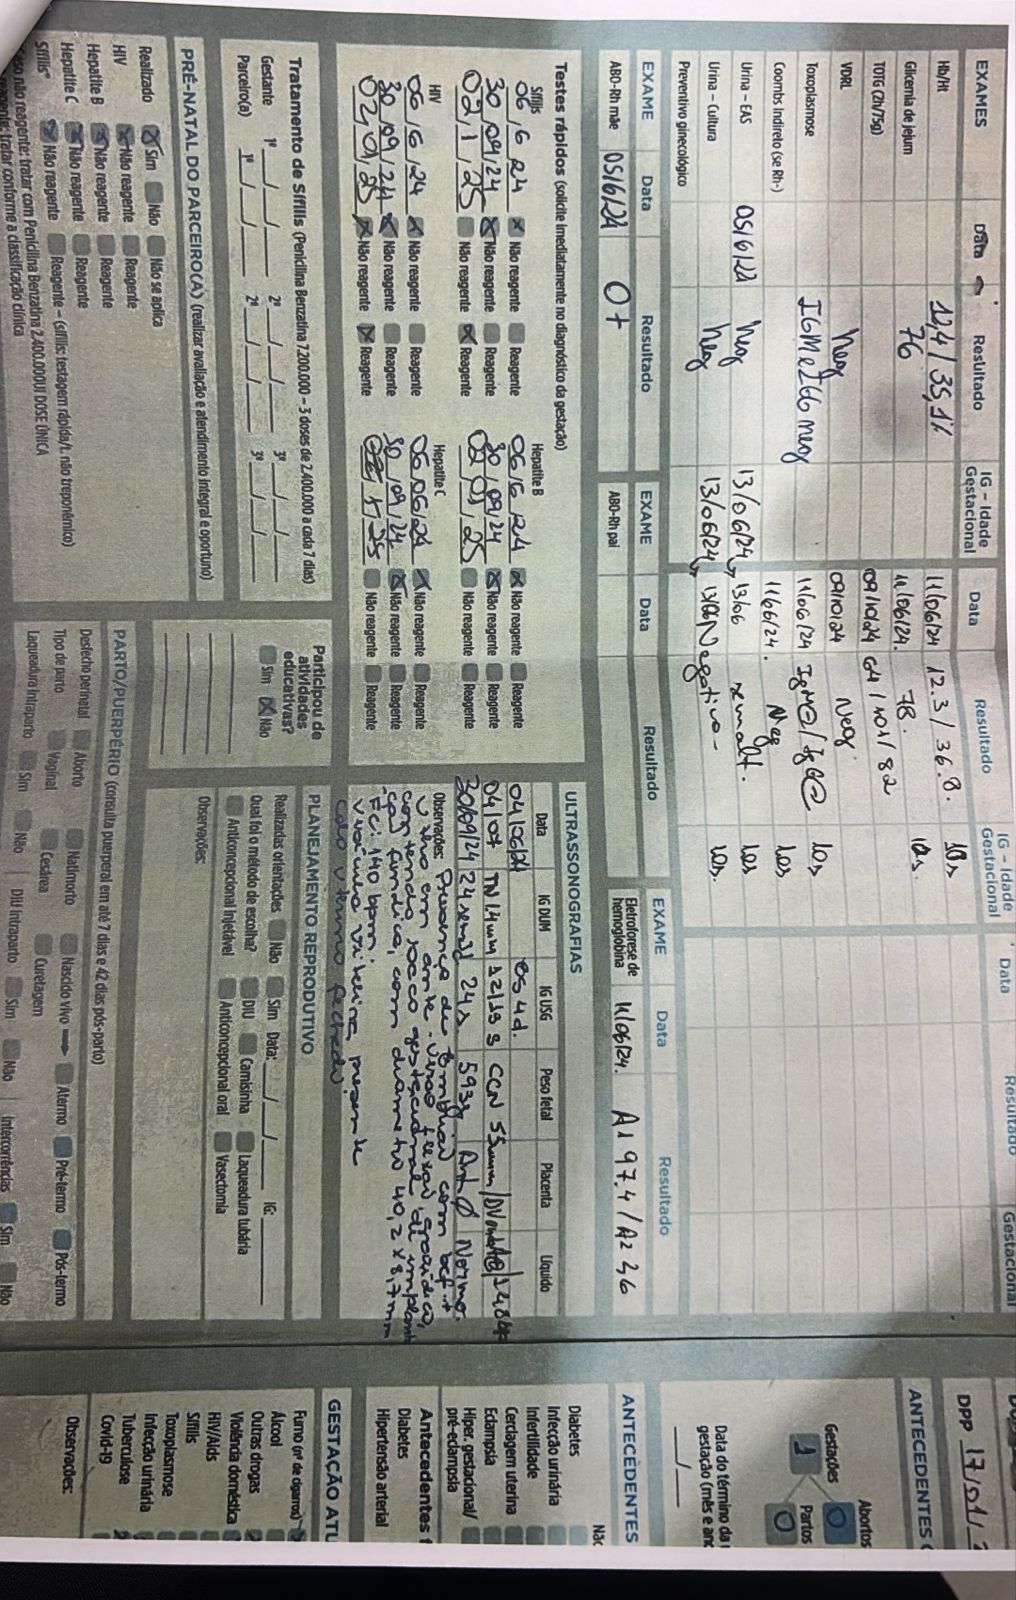 EXAMES Data Resultado IG - Idade Gestacional Data Resultado IG - Idade Gestacional Data Resultado Gestacional
Hb/Ht 12,4 / 35,1% 11/06/24 12.3 / 36.8. 10s
Glicemia de jejum 76 11/06/24. 78. 10s.
TOTG (2h/75g) 09/10/24 64 / 101 / 82
VDRL Neg 09/10/24 Neg
Toxoplasmose IGM e IGG neg 11/06/24 IgM⊖ / IgG⊖ 10s
Coombs Indireto (se Rh-) 11/06/24. Neg 10s
Urina – EAS 05/6/24 Neg 13/06/24 13/06 10s
Urina – Cultura Neg 13/06/24 13/06 Negativo - 10s.
Preventivo ginecológico
EXAME Data Resultado EXAME Data Resultado EXAME Data Resultado
ABO-Rh mãe 05/6/24 O+ ABO-Rh pai Eletroforese de hemoglobina 11/06/24. A1 97.4 / A2 2.6
Testes rápidos (solicite imediatamente no diagnóstico da gestação)
Sífilis Hepatite B
06/6/24 Não reagente Reagente 06/6/24 Não reagente Reagente
30/09/24 Não reagente Reagente 30/09/24 Não reagente Reagente
02/1/25 Não reagente Reagente 02/01/25 Não reagente Reagente
HIV Hepatite C
06/6/24 Não reagente Reagente 06/06/24 Não reagente Reagente
30/09/24 Não reagente Reagente 30/09/24 Não reagente Reagente
02/01/25 Não reagente Reagente Não reagente Reagente
Tratamento de Sífilis (Penicilina Benzatina 7.200.000 – 3 doses de 2.400.000 a cada 7 dias)
Gestante 1ª __/__/__ 2ª __/__/__ 3ª __/__/__
Parceiro(a) 1ª __/__/__ 2ª __/__/__ 3ª __/__/__
Participou de atividades educativas?
Sim Não
PRÉ-NATAL DO PARCEIRO(A) (realizar avaliação e atendimento integral e oportuno)
Realizado Sim Não Não se aplica
HIV Não reagente Reagente
Hepatite B Não reagente Reagente
Hepatite C Não reagente Reagente
Sífilis* Não reagente Reagente – (sífilis: testagem rápida/t. não treponêmico)
não reagente: tratar com Penicilina Benzatina 2.400.000UI DOSE ÚNICA
reagente: tratar conforme a classificação clínica
ULTRASSONOGRAFIAS
Data IG DUM IG USG Peso fetal Placenta Líquido
04/06/24 8s 4d.
04/07 TN 1.4mm 12/13 s CCN 55mm
30/09/24 24 24s 593g Ant Normo.
Observações: Presença de embrião com bcf +
Útero em
contendo saco gestacional de
com diâmetro 40,2 x 8,7mm
FC: 140 bpm.
vesícula vitelina presente
colo uterino fechado.
PLANEJAMENTO REPRODUTIVO
Realizadas orientações Não Sim Data: __/__/__ IG: ____
Qual foi o método de escolha? DIU Camisinha Laqueadura tubária
Anticoncepcional injetável Anticoncepcional oral Vasectomia
Observações:
PARTO/PUERPÉRIO (consulta puerperal em até 7 dias e 42 dias pós-parto)
Desfecho perinatal Aborto Natimorto Nascido vivo Atermo Pré-termo Pós-termo
Tipo de parto Vaginal Cesárea Curetagem
Laqueadura intraparto Sim Não DIU intraparto Sim Não Intercorrências Sim Não
DPP 17/01/
ANTECEDENTES
Gestações Abortos
1 0
Partos
0
Data do término da
gestação (mês e an
__/__
ANTECEDENTES
Não
Diabetes
Infecção urinária
Infertilidade
Cerclagem uterina
Eclampsia
Hiper. gestacional/
pré-eclampsia
Antecedentes
Diabetes
Hipertensão arterial
GESTAÇÃO ATU
Fumo (nº de cigarros)
Álcool
Outras drogas
Violência doméstica
HIV/Aids
Sífilis
Toxoplasmose
Infecção urinária
Tuberculose
Covid-19
Observações: